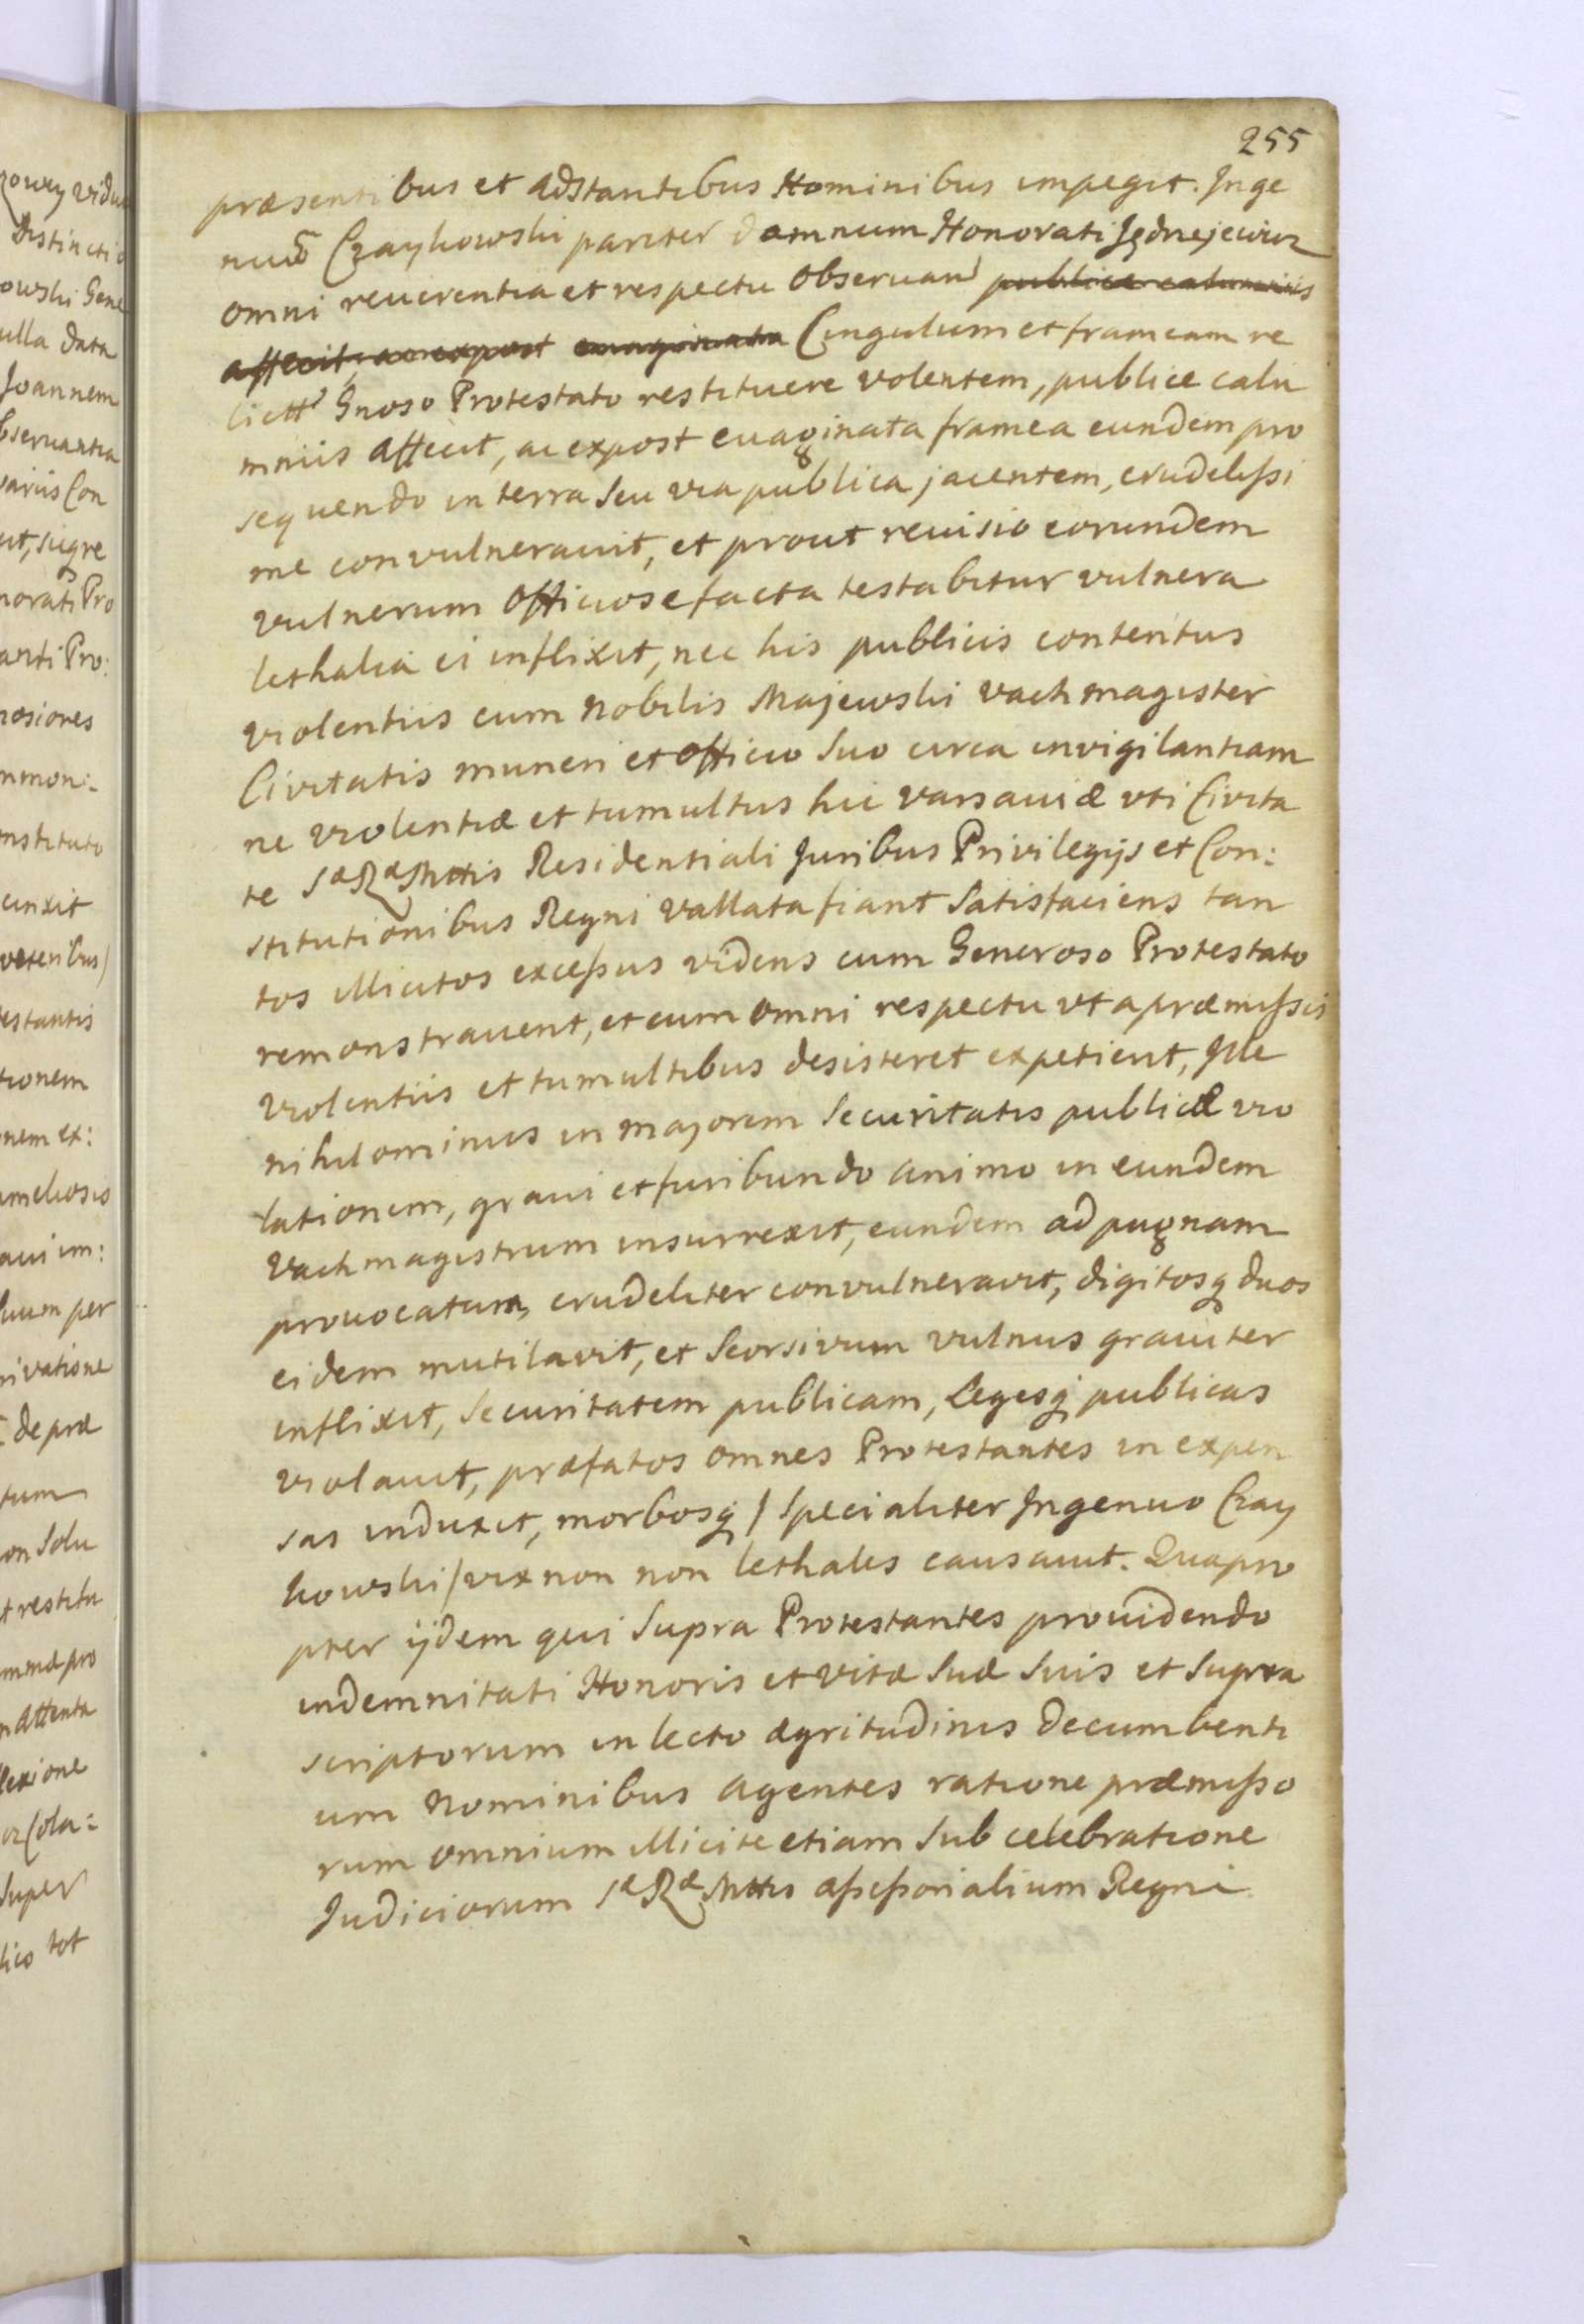 255
præsentibus et adstantibus Hominibus impegit. Inge
nuũ Czaykowski pariter damnum Honorati Jędrzejewicz
omni reverentia et respectu observan publice calumniis
affecit, ac expost evaginata Cingulum et frameam re
lictã Gnoso Protestato restituere volentem, publice calu
mniis affecit, ac expost evaginata framea eundem pro
sequendo in terra seu via publica jacentem, crudelissi
me convulneravit, et prout revisio eorundem
vulnerum officiose facta testabitur vulnera
lethalia ei inflixit, nec his publicis contentus
violentiis cum Nobilis Majewski Vachmagister
Civitatis muneri et officio suo circa invigilantiam
ne violentiæ et tumultus hic Varsaviæ uti Civita
te Sæ Ræ Mttis Residentiali Juribus Privilegijs et Con:
stitutionibus Regni vallata fiant satisfaciens tan
tos illicitos excessus videns cum Generoso Protestato
remonstraverit, et cum omni respectu ut a præmissis
violentiis et tumultibus desisteret expetierit, Ille
nihilominus in majorem securitatis publicæ vio
lationem, gravi et furibundo animo in eundem
Vachmagistrum insurrexit, eundem ad pugnam
provocatum, crudeliter convulneravit, digitosq duos
eidem mutilavit, et seorsivum vulnus graviter
inflixit, securitatem publicam, Legesq publicas
violavit, præfatos omnes Protestantes in expen
sas induxit, morbosq / specialiter Ingenuo Czay
kowski / vix non non lethales causavit. Quapro
pter ijdem qui supra Protestantes providendo
indemnitati Honoris et vitæ suæ suis et supra
scriptorum in lecto ægritudinis decumbenti
um nominibus agentes ratione præmisso
rum omnium illicite etiam sub celebratione
Judiciorum Sæ Ræ Mttis assessorialium Regni